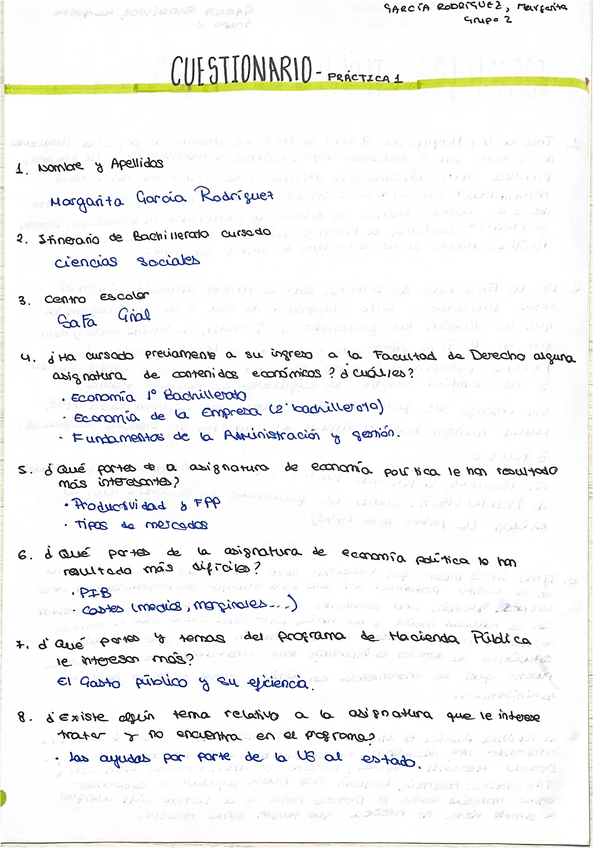 GARCÍA RODRÍGUEZ, Margarita
Grupo 2
CUESTIONARIO - PRÁCTICA 1
1. Nombre y Apellidos
Margarita García Rodríguez
2. Itinerario de Bachillerato cursado
Ciencias Sociales
3. Centro escolar
SaFa Grial
4. ¿Ha cursado previamente a su ingreso a la Facultad de Derecho alguna
asignatura de contenidos económicos? ¿cuáles?
· Economía 1º Bachillerato
· Economía de la Empresa (2º bachillerato)
· Fundamentos de la Administración y gestión.
5. ¿Qué partes de a asignatura de economía política le han resultado
más interesantes?
· Productividad y FPP
· Tipos de mercados
6. ¿Qué partes de la asignatura de economía política le han
resultado más difíciles?
· PIB
· Costes (medios, marginales...)
7. ¿Qué partes y temas del programa de Hacienda Pública
le interesan más?
El Gasto público y su eficiencia.
8. ¿Existe algún tema relativo a la asignatura que le interese
tratar y no encuentra en el programa?
· Las ayudas por parte de la UE al estado.